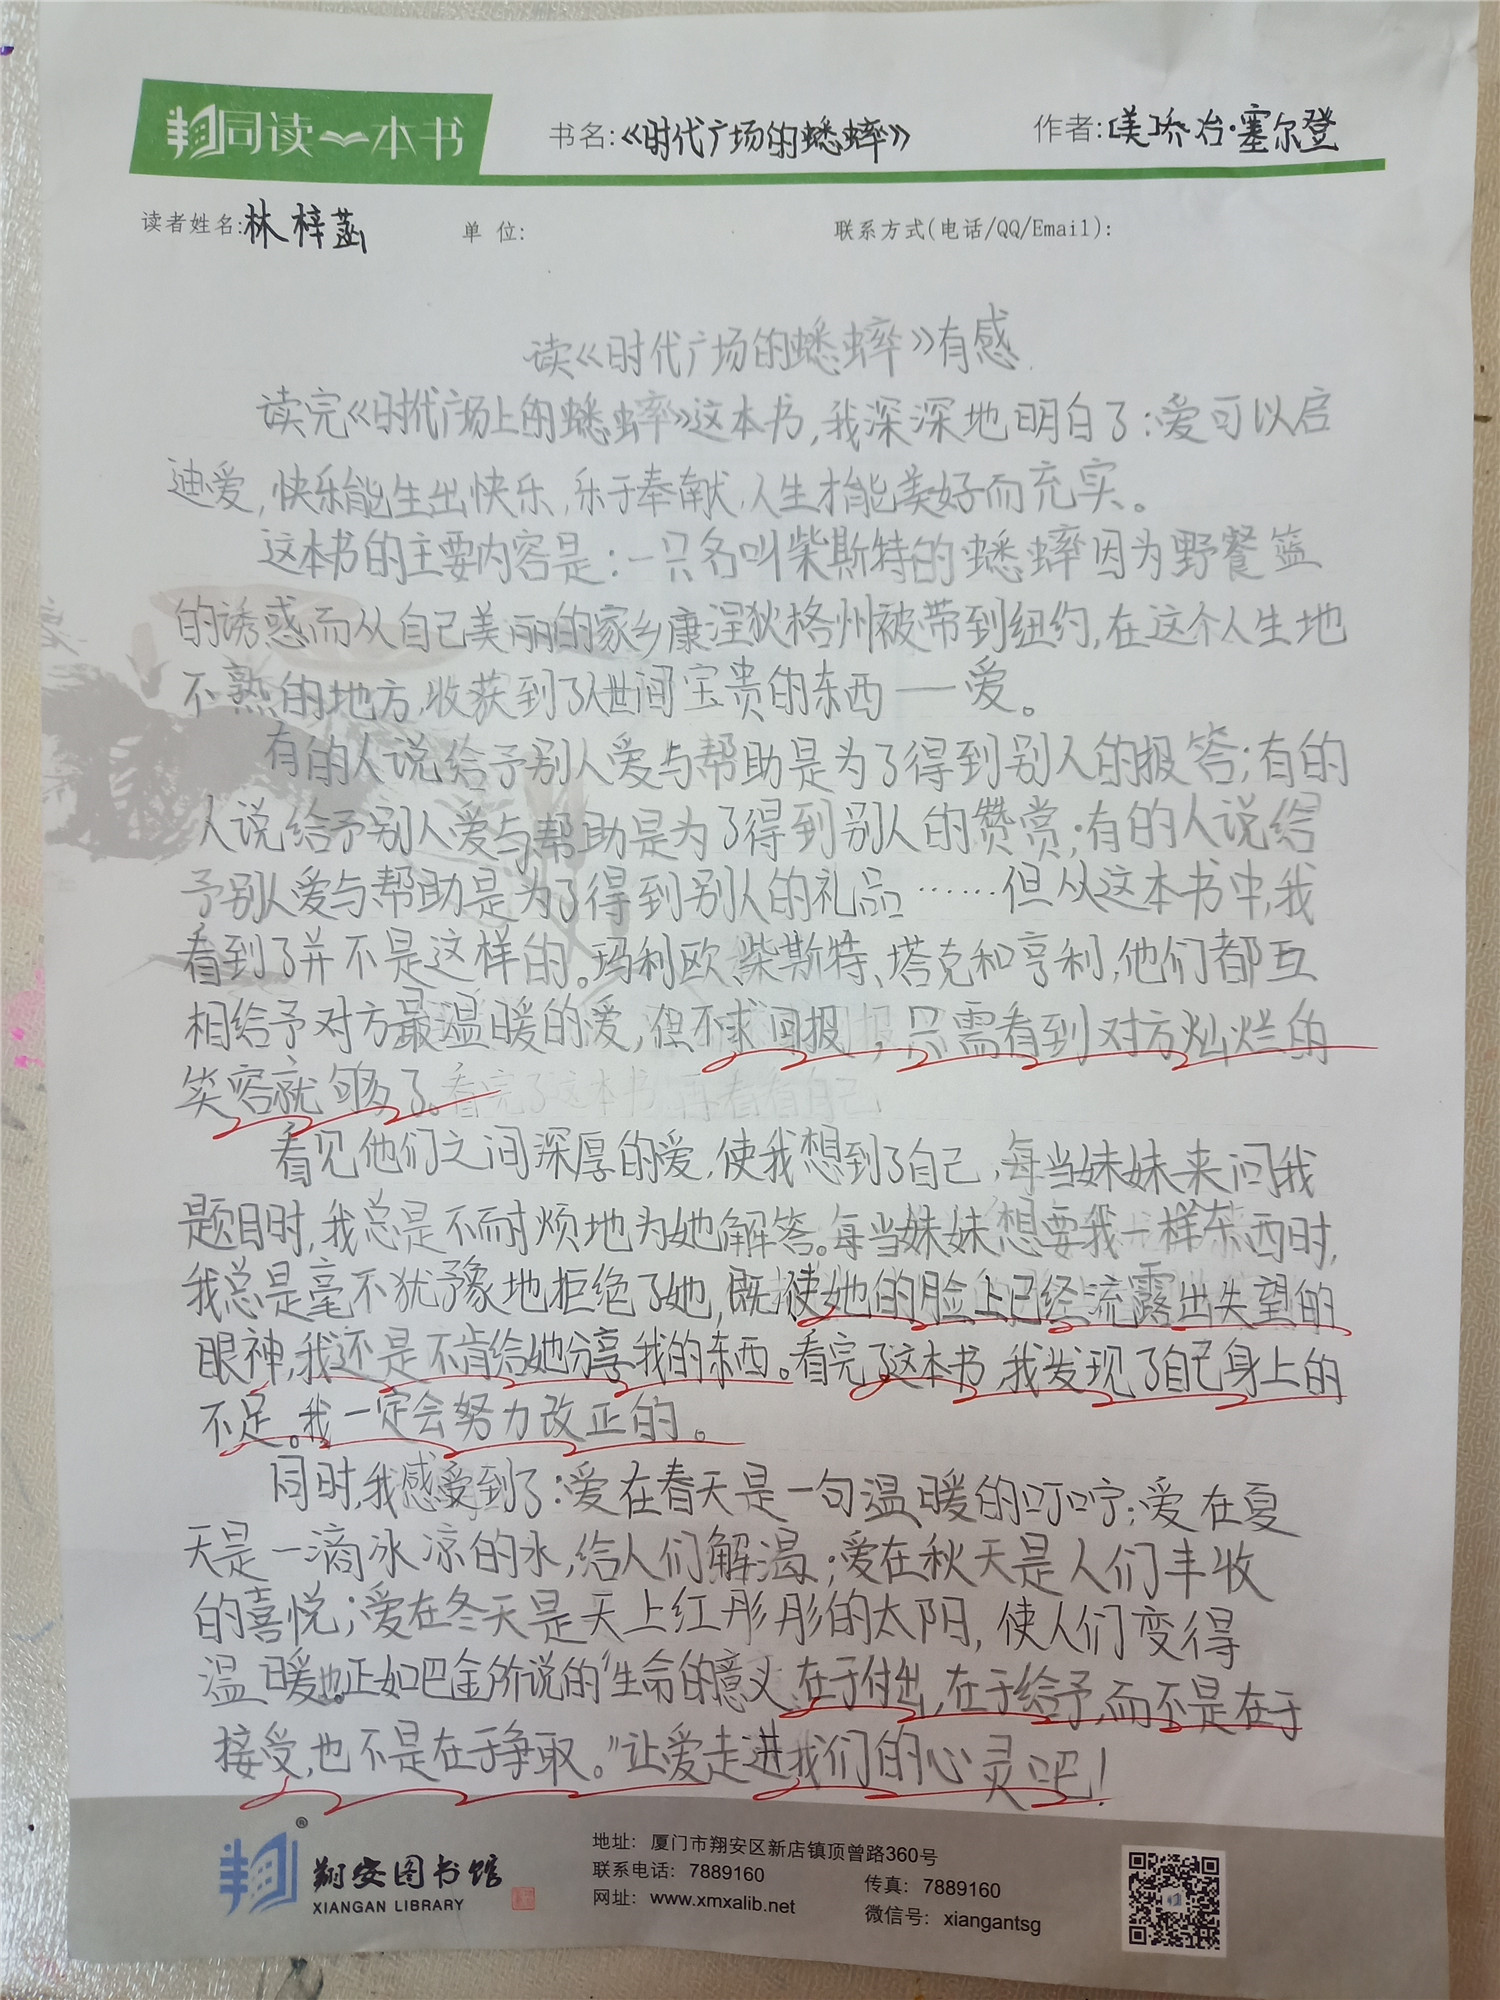 翔同读一本书
书名:《时代广场的蟋蟀》 作者:[美]乔治·塞尔登
读者姓名:林梓菡 单 位: 联系方式(电话/QQ/Email):
读《时代广场的蟋蟀》有感
读完《时代广场上的蟋蟀》这本书,我深深地明白了:爱可以启
迪爱,快乐能生出快乐,乐于奉献,人生才能美好而充实。
这本书的主要内容是:一只名叫柴斯特的蟋蟀因为野餐篮
的诱惑而从自己美丽的家乡康涅狄格州被带到纽约,在这个人生地
不熟的地方,收获到了人世间宝贵的东西——爱。
有的人说给予别人爱与帮助是为了得到别人的报答;有的
人说给予别人爱与帮助是为了得到别人的赞赏;有的人说给
予别人爱与帮助是为了得到别人的礼品……但从这本书中,我
看到了并不是这样的。玛利欧、柴斯特、塔克和亨利,他们都互
相给予对方最温暖的爱,但不求回报,只需看到对方灿烂的
笑容就够了。
看见他们之间深厚的爱,使我想到了自己,每当妹妹来问我
题目时,我总是不耐烦地为她解答。每当妹妹想要我一样东西时,
我总是毫不犹予豫地拒绝了她,既使她的脸上已经流露出失望的
眼神,我还是不肯给她分享我的东西。看完了这本书,我发现了自己身上的
不足。我一定会努力改正的。
同时,我感受到了:爱在春天是一句温暖的叮咛;爱在夏
天是一滴冰凉的水,给人们解渴;爱在秋天是人们丰收
的喜悦;爱在冬天是天上红彤彤的太阳,使人们变得
温暖。也正如巴金所说的“生命的意义在于付出,在于给予,而不是在于
接受,也不是在于争取。”让爱走进我们的心灵吧!
翔® 翔安图书馆
XIANGAN LIBRARY
地址: 厦门市翔安区新店镇顶曾路360号
联系电话: 7889160 传真: 7889160
网址: www.xmxalib.net 微信号: xiangantsg